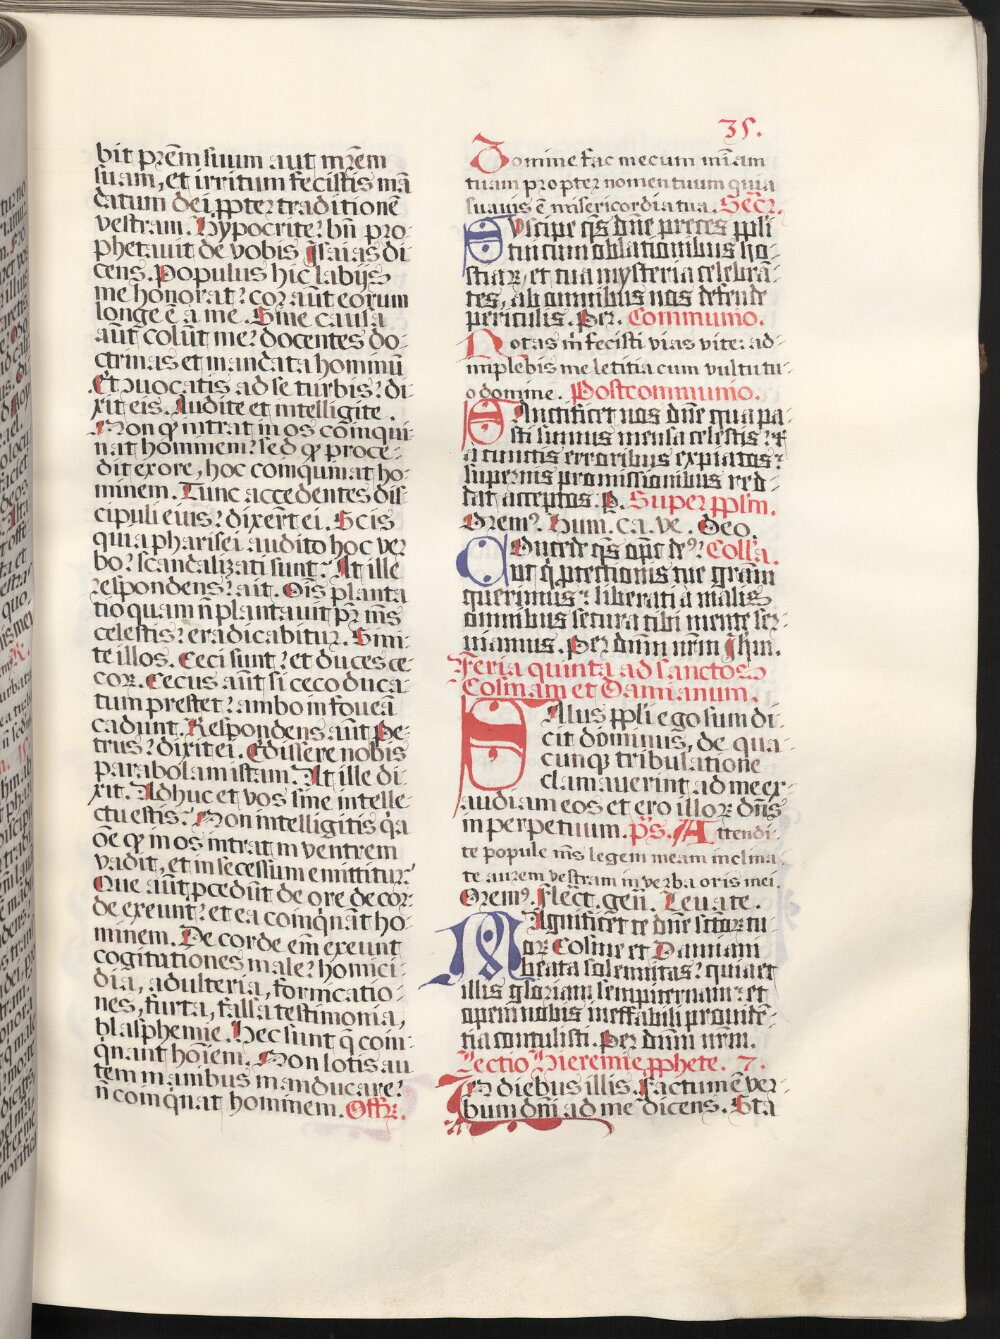 bit prēm suum aut mr̄em
suam, et irritum fecistis mā
datum dei ꝓpter traditionē
vestram. Hypocrite: bn̄ pro-
phetauit de vobis Isaias di
cens. Populus hic labijs
me honorat: cor aūt eorum
longe ē a me. Sine causa
aūt colūt me: docentes do-
ctrinas et mandata hominū
Et uocatis ad se turbis: di-
xit eis. Audite et intelligite.
Non qḍ intrat in os cōinqui-
nat hominem: sed qḍ proce-
dit ex ore, hoc coinquinat ho-
minem. Tunc accedentes dis
cipuli eius: dixer̄t ei. Scis
quia pharisei audito hoc ver
bo: scandalizati sunt: At ille
respondens: ait. Oīs planta
tio quam n̄ plantauit pr̄ ms̄
celestis: eradicabitur. Sini-
te illos. Ceci sunt: et duces ce-
coꝝ. Cecus aūt si ceco duca-
tum prestet: ambo in foueā
cadunt. Respondens aūt Pe-
trus: dixit ei. Edissere nobis
parabolam istam. At ille di-
xit. Adhuc et vos sine intelle-
ctu estis: Non intelligitis q̇a
oē qḍ in os intrat in ventrem
vadit, et in secessum emittitur:
Que aūt ꝓcedūt de ore de cor-
de exeunt: et ea coinq̇nāt ho-
minem. De corde em̄ exeunt
cogitationes male: homici-
dia, adulteria, fornicatio-
nes, furta, falsa testimonia,
blasphemie. Hec sunt q̄ coin-
q̇nant hoīem. Non lotis au
tem manibus manducare:
n̄ coinq̇nat hominem. Offꝝ.
35.
Domine fac mecum miām
tuam propter nomen tuum quia
suauis ē misericordia tua. Secr̄.
Suscipe qs̄ dn̄e preces ppli
tui cum oblationibus ho-
stiaꝝ: et tua mysteria celebrā-
tes, ab omnibus nos defende
periculis. Per. Communio.
Notas m̄ fecisti vias vite: ad-
implebis me letitia cum vultu tu-
o domine. Postcommunio.
Sanctificet nos dn̄e qua pa-
sti sumus mensa celestis: et
a cunctis erroribus expiatos:
supernis promissionibus red-
dat acceptos. P. Super pplm̄.
Orem⁹. Hum. ca. ve. Deo.
Concede qs̄ om̄ps de⁹: Coll̄a.
ut q̇ ꝓtectionis tue grām
querimus: liberati a malis
omnibus secura tibi mente ser-
uiamus. Per dnm̄ nrm̄ Ihm̄.
Feria quinta ad sanctos
Cosmam et Damianum.
Salus ppli ego sum di-
cit dominus, de qua-
cunqꝫ tribulatione
clamauerint ad me ex-
audiam eos et ero illoꝝ dn̄s
in perpetuum. p̄s. Attendi-
te popule ms̄ legem meam inclina-
te aurem vestram in verba oris mei.
Orem⁹. Flect. gen. Leuate.
Magnificet te dn̄e sctōꝝ tu-
oꝝ Cosme et Damiani
beata solemnitas: quia et
illis gloriam sempiternam: et
opem nobis ineffabili prouidē-
tia contulisti. Per dnm̄ nrm̄.
Lectio Hieremie ꝓphete. 7.
In diebus illis. Factum ē ver-
bum dn̄i ad me dicens. Sta